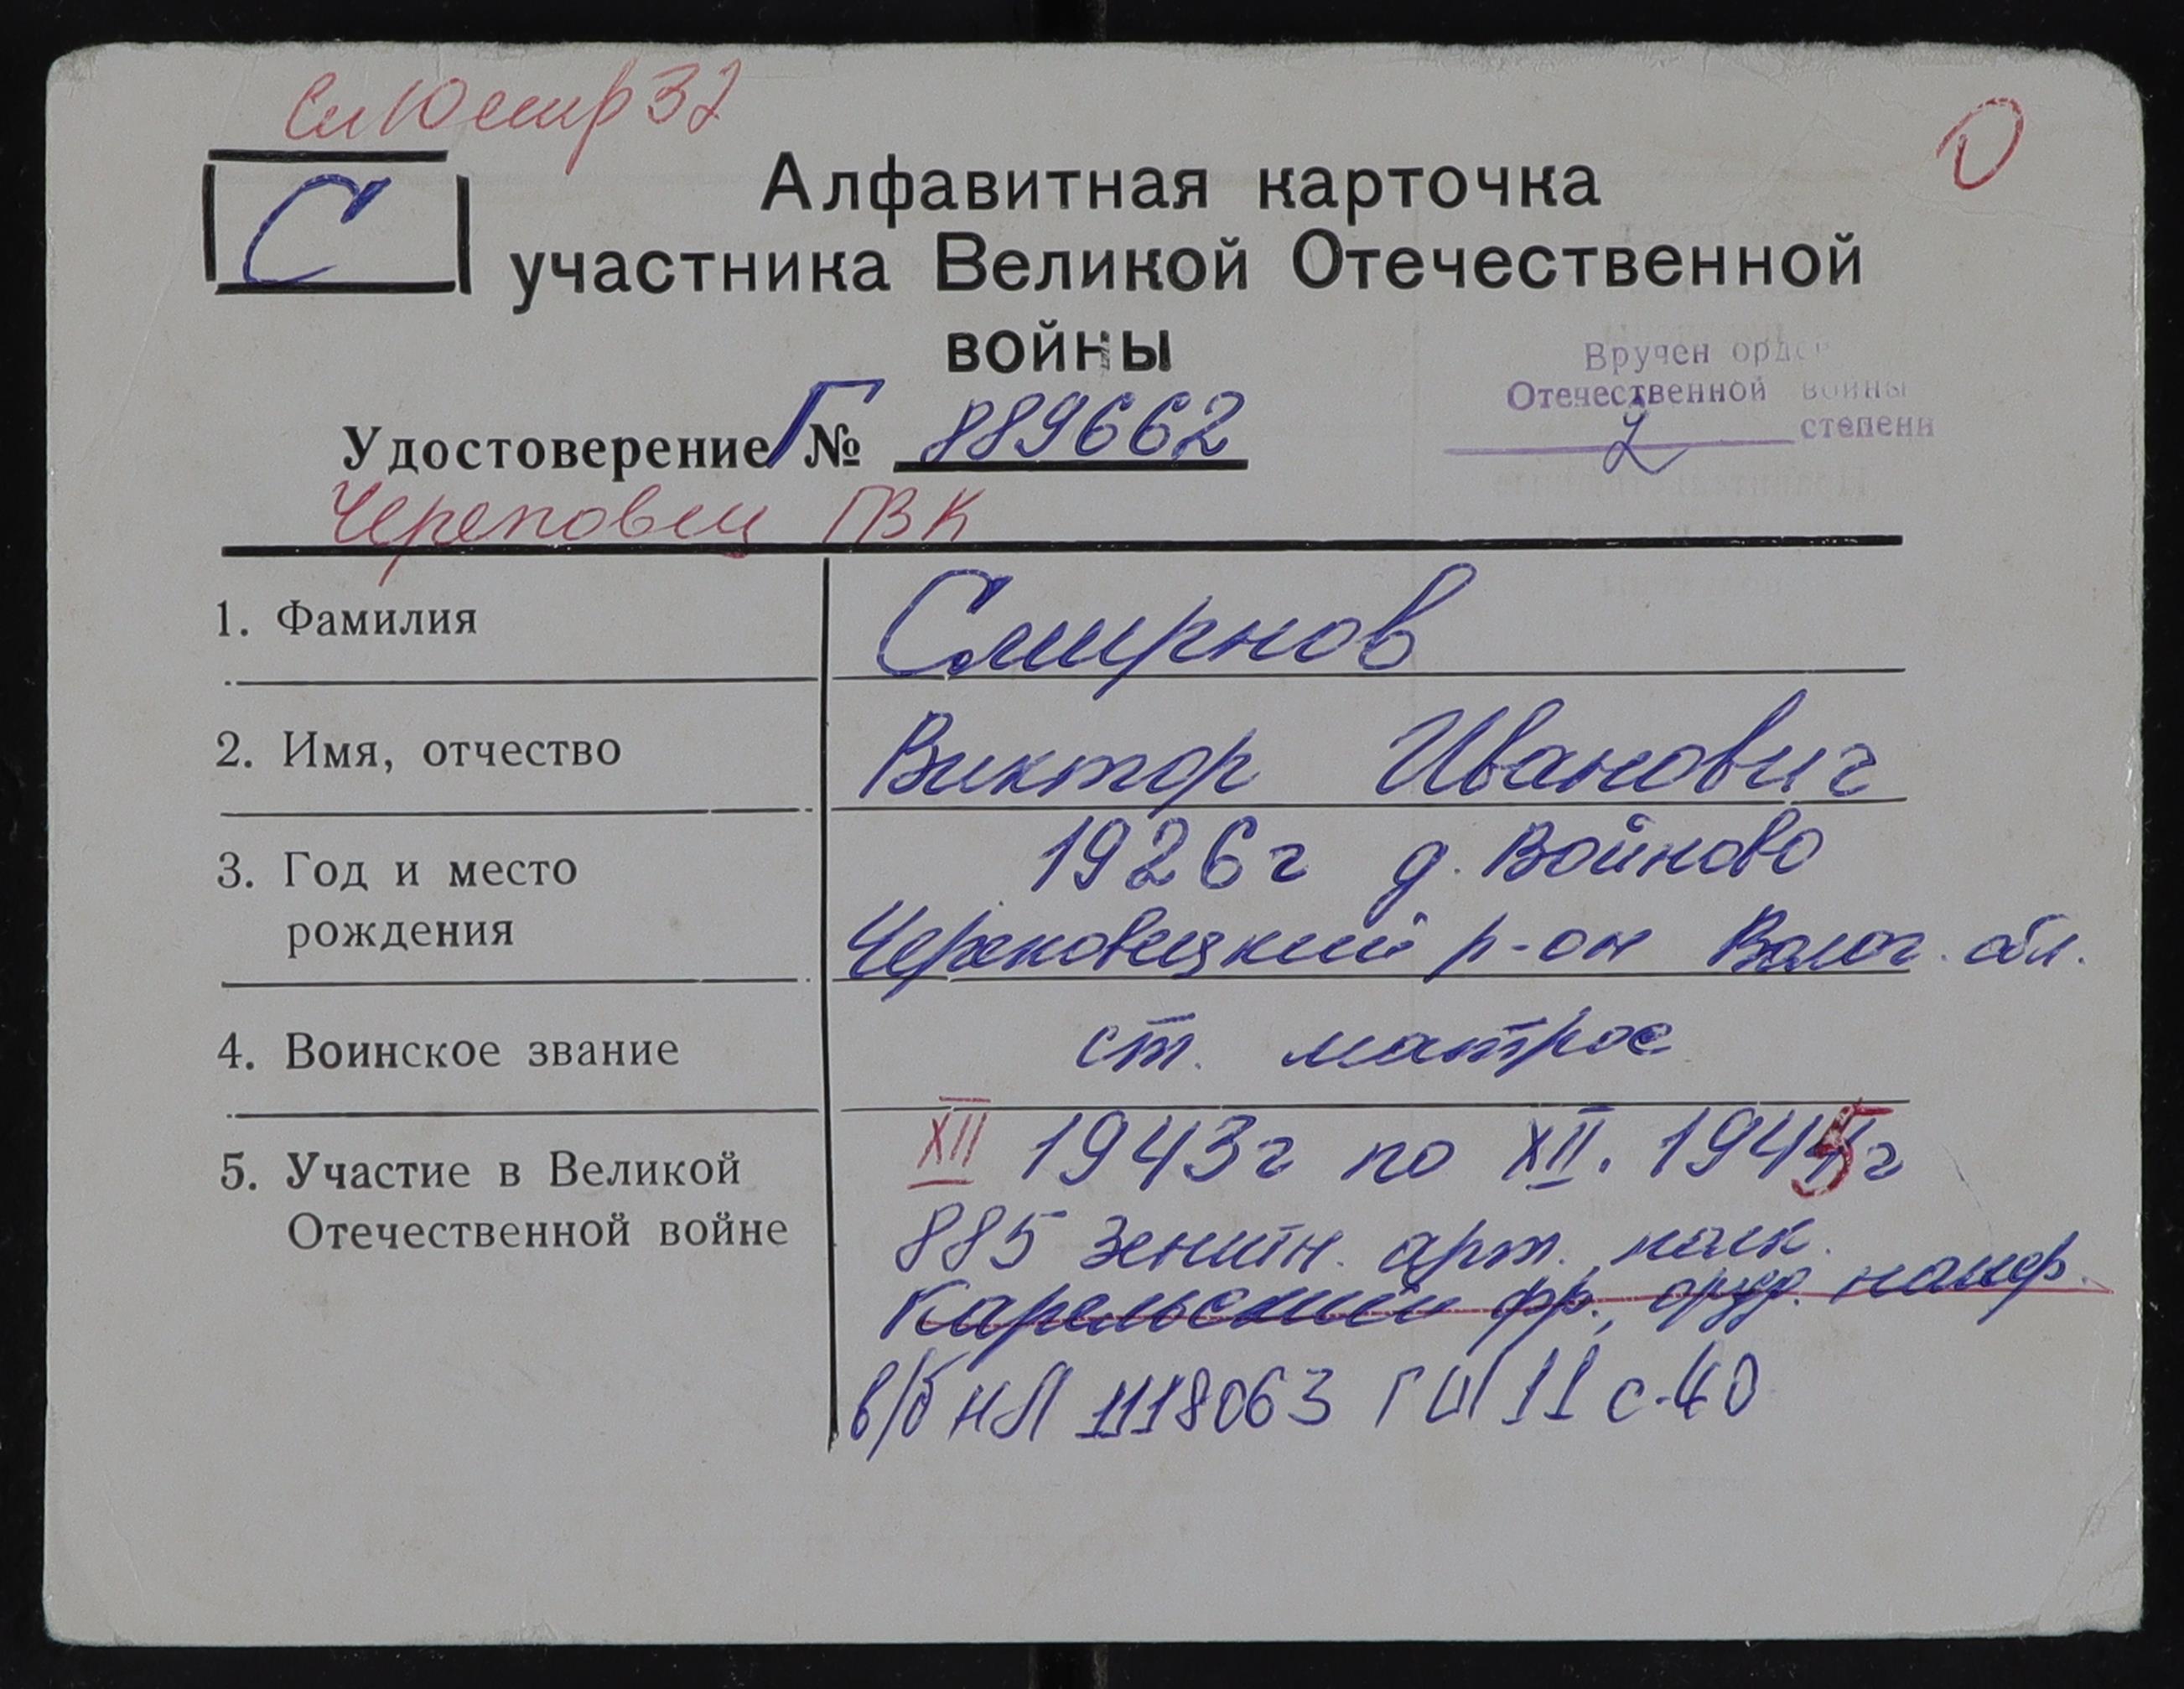 О
С
Алфавитная карточка
участника Великой Отечественной
войны
Вручен орден
Отечественной войны
2 степени
Удостоверение Г № 889662
Череповец ГВК
1. Фамилия
Смирнов
2. Имя, отчество
Виктор Иванович
3. Год и место
рождения
1926 г д. Войново
Череповецкий р-он Волог. обл.
4. Воинское звание
ст. матрос
5. Участие в Великой
Отечественной войне
XII 1943 г по XII. 1945 г
885 зенитн. арт. полк.
Карельский фр., оруд.
в/б НЛ 1118063 ГШ 11 с-40